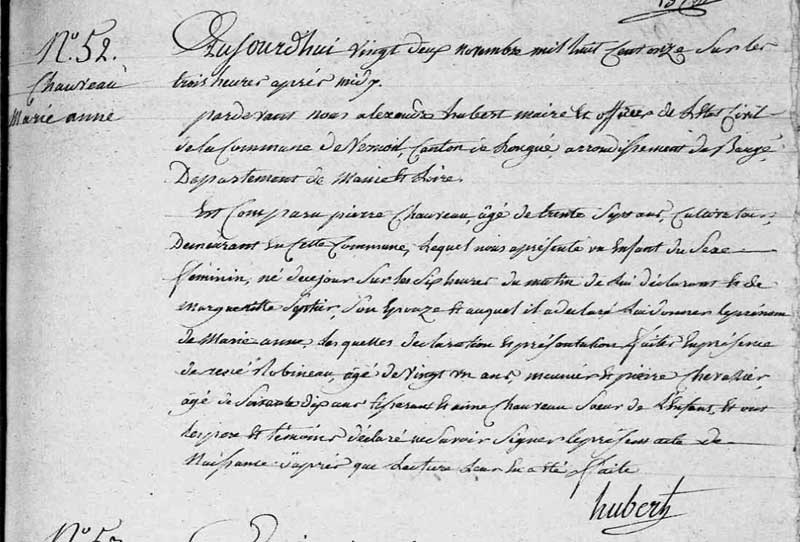 N.º 52.
Chauveau
Marie anne
Aujourdhui vingt deux novembre mil huit Cent onze Sur les
trois heures aprés midy.
pardevant nous alexandre hubert maire et officier de l'Etat Civil
de la Commune de Vernoil, Canton de Longué, arrondissement de Baugé,
Département de Maine et Loire.
Est Comparu pierre Chauveau, âgé de trente Sept ans, Cultivateur
Demeurant en Cette Commune, Lequel nous a présenté un Enfant du Sexe
féminin, né de ce jour Sur les Six heures du matin de lui déclarant et de
Margueritte Son Epouze et auquel il a déclaré lui donner le prénom
de Marie anne, Les quelles déclaration et présentation faites En présence
de rené Robineau, âgé de Vingt un ans, meunier et pierre Chevallier
âgé de Soixante dix ans tisserant et aine Chauveau Soeur de l'Enfant, et ont
Les pere et témoins déclaré ne Savoir Signer le présent acte de
Naissance d'aprés que Lecture leur En a été faite
hubert
N.º 53